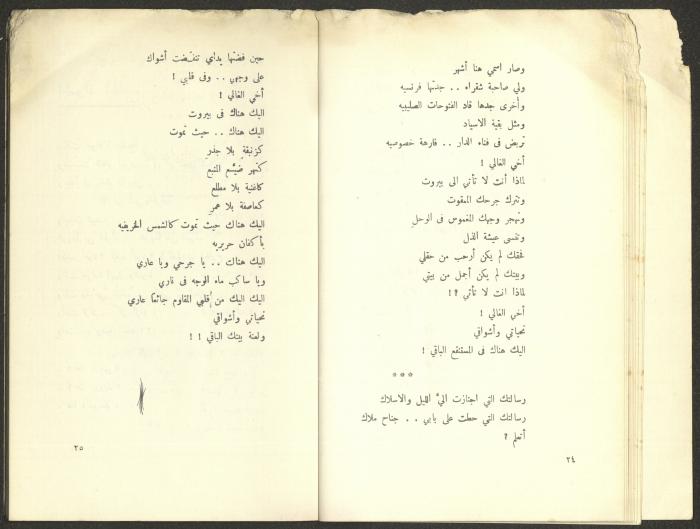 وصار اسمي هنا أشهر
ولي صاحبة شقراء . . جدتها فرنسيه
وأخرى جدها قاد الفتوحات الصليبيه
ومثل بقية الاسياد
تربض في فناء الدار . . فارهة خصوصيه
أخي الغالي !
لماذا أنت لا تأتي الى بيروت
وتترك جرحك الممقوت
وتهجر وجهك المغموس في الوحل
وتنسى عيشة الذل
فحقك لم يكن أرحب من حقلي
وبيتك لم يكن أجمل من بيتي
لماذا انت لا تأتي ؟!
أخي الغالي !
تحياتي وأشواقي
اليك هناك في المستنقع الباقي !
***
رسالتك التي اجتازت اليّ الليل والاسلاك
رسالتك التي حطت على بابي . . جناح ملاك
أتعلم ؟
٢٤
حين فضتها يداي تنفّضت أشواك
على وجهي . . وفي قلبي !
أخي الغالي !
اليك هناك في بيروت
اليك هناك . . حيث تموت
كزنبقةٍ بلا جذرِ
كنهر ضيّع النبع
كاغنية بلا مطلع
كعاصفة بلا عمرِ
اليك هناك حيث تموت كالشمس الخريفيه
بأكفان حريريه
اليك هناك . . يا جرحي ويا عاري
ويا ساكب ماء الوجه في ناري
اليك اليك من قلبي المقاوم جائعًا عاري
تحياتي وأشواقي
ولعنة بيتك الباقي ! !
٢٥